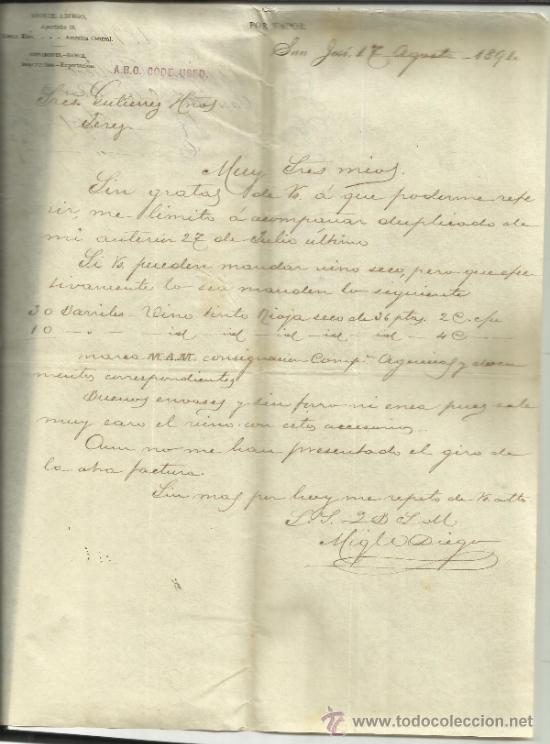 MIGUEL A. DIEGO,
Apartado
Costa Rica, . . . America Central.
Importación-Exportación
POR VAPOR
A.B.C. CODE USED.
San José 17 Agosto 1891.
Sres. Gutierrez Hnos
Jerez
Muy Sres mios.
Sin gratas de Vs. á que poderme refe
rir, me limito á acompañar duplicado de
mi anterior 27 de Julio último
Si Vs. pueden mandar vino seco, pero que efec
tivamente lo sea manden lo siguiente
30 Barriles Vino tinto Rioja seco de 36 ptas. 2 C. c/u
10 " " id id id id id 4 C
marca M.A.M. consignacion Compª Agencias y docu
mentos correspondientes
Buenos envases y sin furo ni enea pues sale
muy caro el vino con estos accesorios.
Aun no me han presentado el giro de
la otra factura.
Sin mas por hoy me repito de Vs atto
S. S. Q B S M
Migl A Diego
www.todocoleccion.net